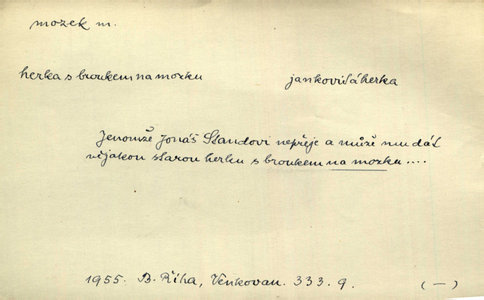 mozek m.
herka s broukem na mozku
jankovitá herka
Jenomže Jonáš Standovi nepřeje a může mu dát
nějakou starou herku s broukem na mozku....
1955. B. Říha, Venkovan. 333. 9. (-)